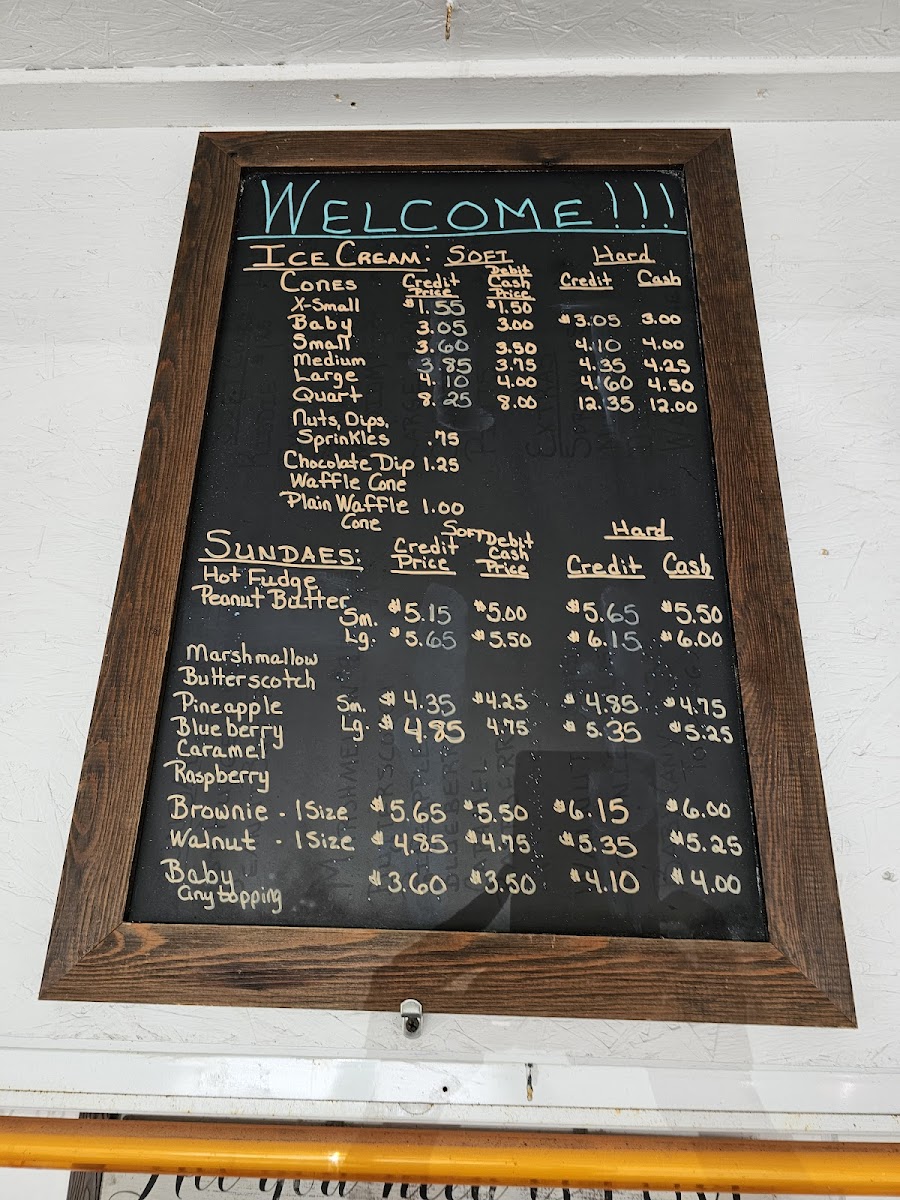 WELCOME!!!
ICE CREAM: SOFT Hard
CONES Credit Price Debit Cash Price Credit Cash
X-Small $1.55 $1.50
Baby 3.05 3.00 $3.05 3.00
Small 3.60 3.50 4.10 4.00
Medium 3.85 3.75 4.35 4.25
Large 4.10 4.00 4.60 4.50
Quart 8.25 8.00 12.35 12.00
Nuts, Dips,
Sprinkles .75
Chocolate Dip 1.25
Waffle Cone
Plain Waffle 1.00
Cone
SOFT Hard
SUNDAES: Credit Price Debit Cash Price Credit Cash
Hot Fudge
Peanut Butter
Sm. $5.15 $5.00 $5.65 $5.50
Lg. $5.65 $5.50 $6.15 $6.00
Marshmallow
Butterscotch
Pineapple Sm. $4.35 $4.25 $4.85 $4.75
Blueberry Lg. $4.85 4.75 $5.35 $5.25
Caramel
Raspberry
Brownie - 1 Size $5.65 $5.50 $6.15 $6.00
Walnut - 1 Size $4.85 $4.75 $5.35 $5.25
Baby $3.60 $3.50 $4.10 $4.00
any topping
All you need is